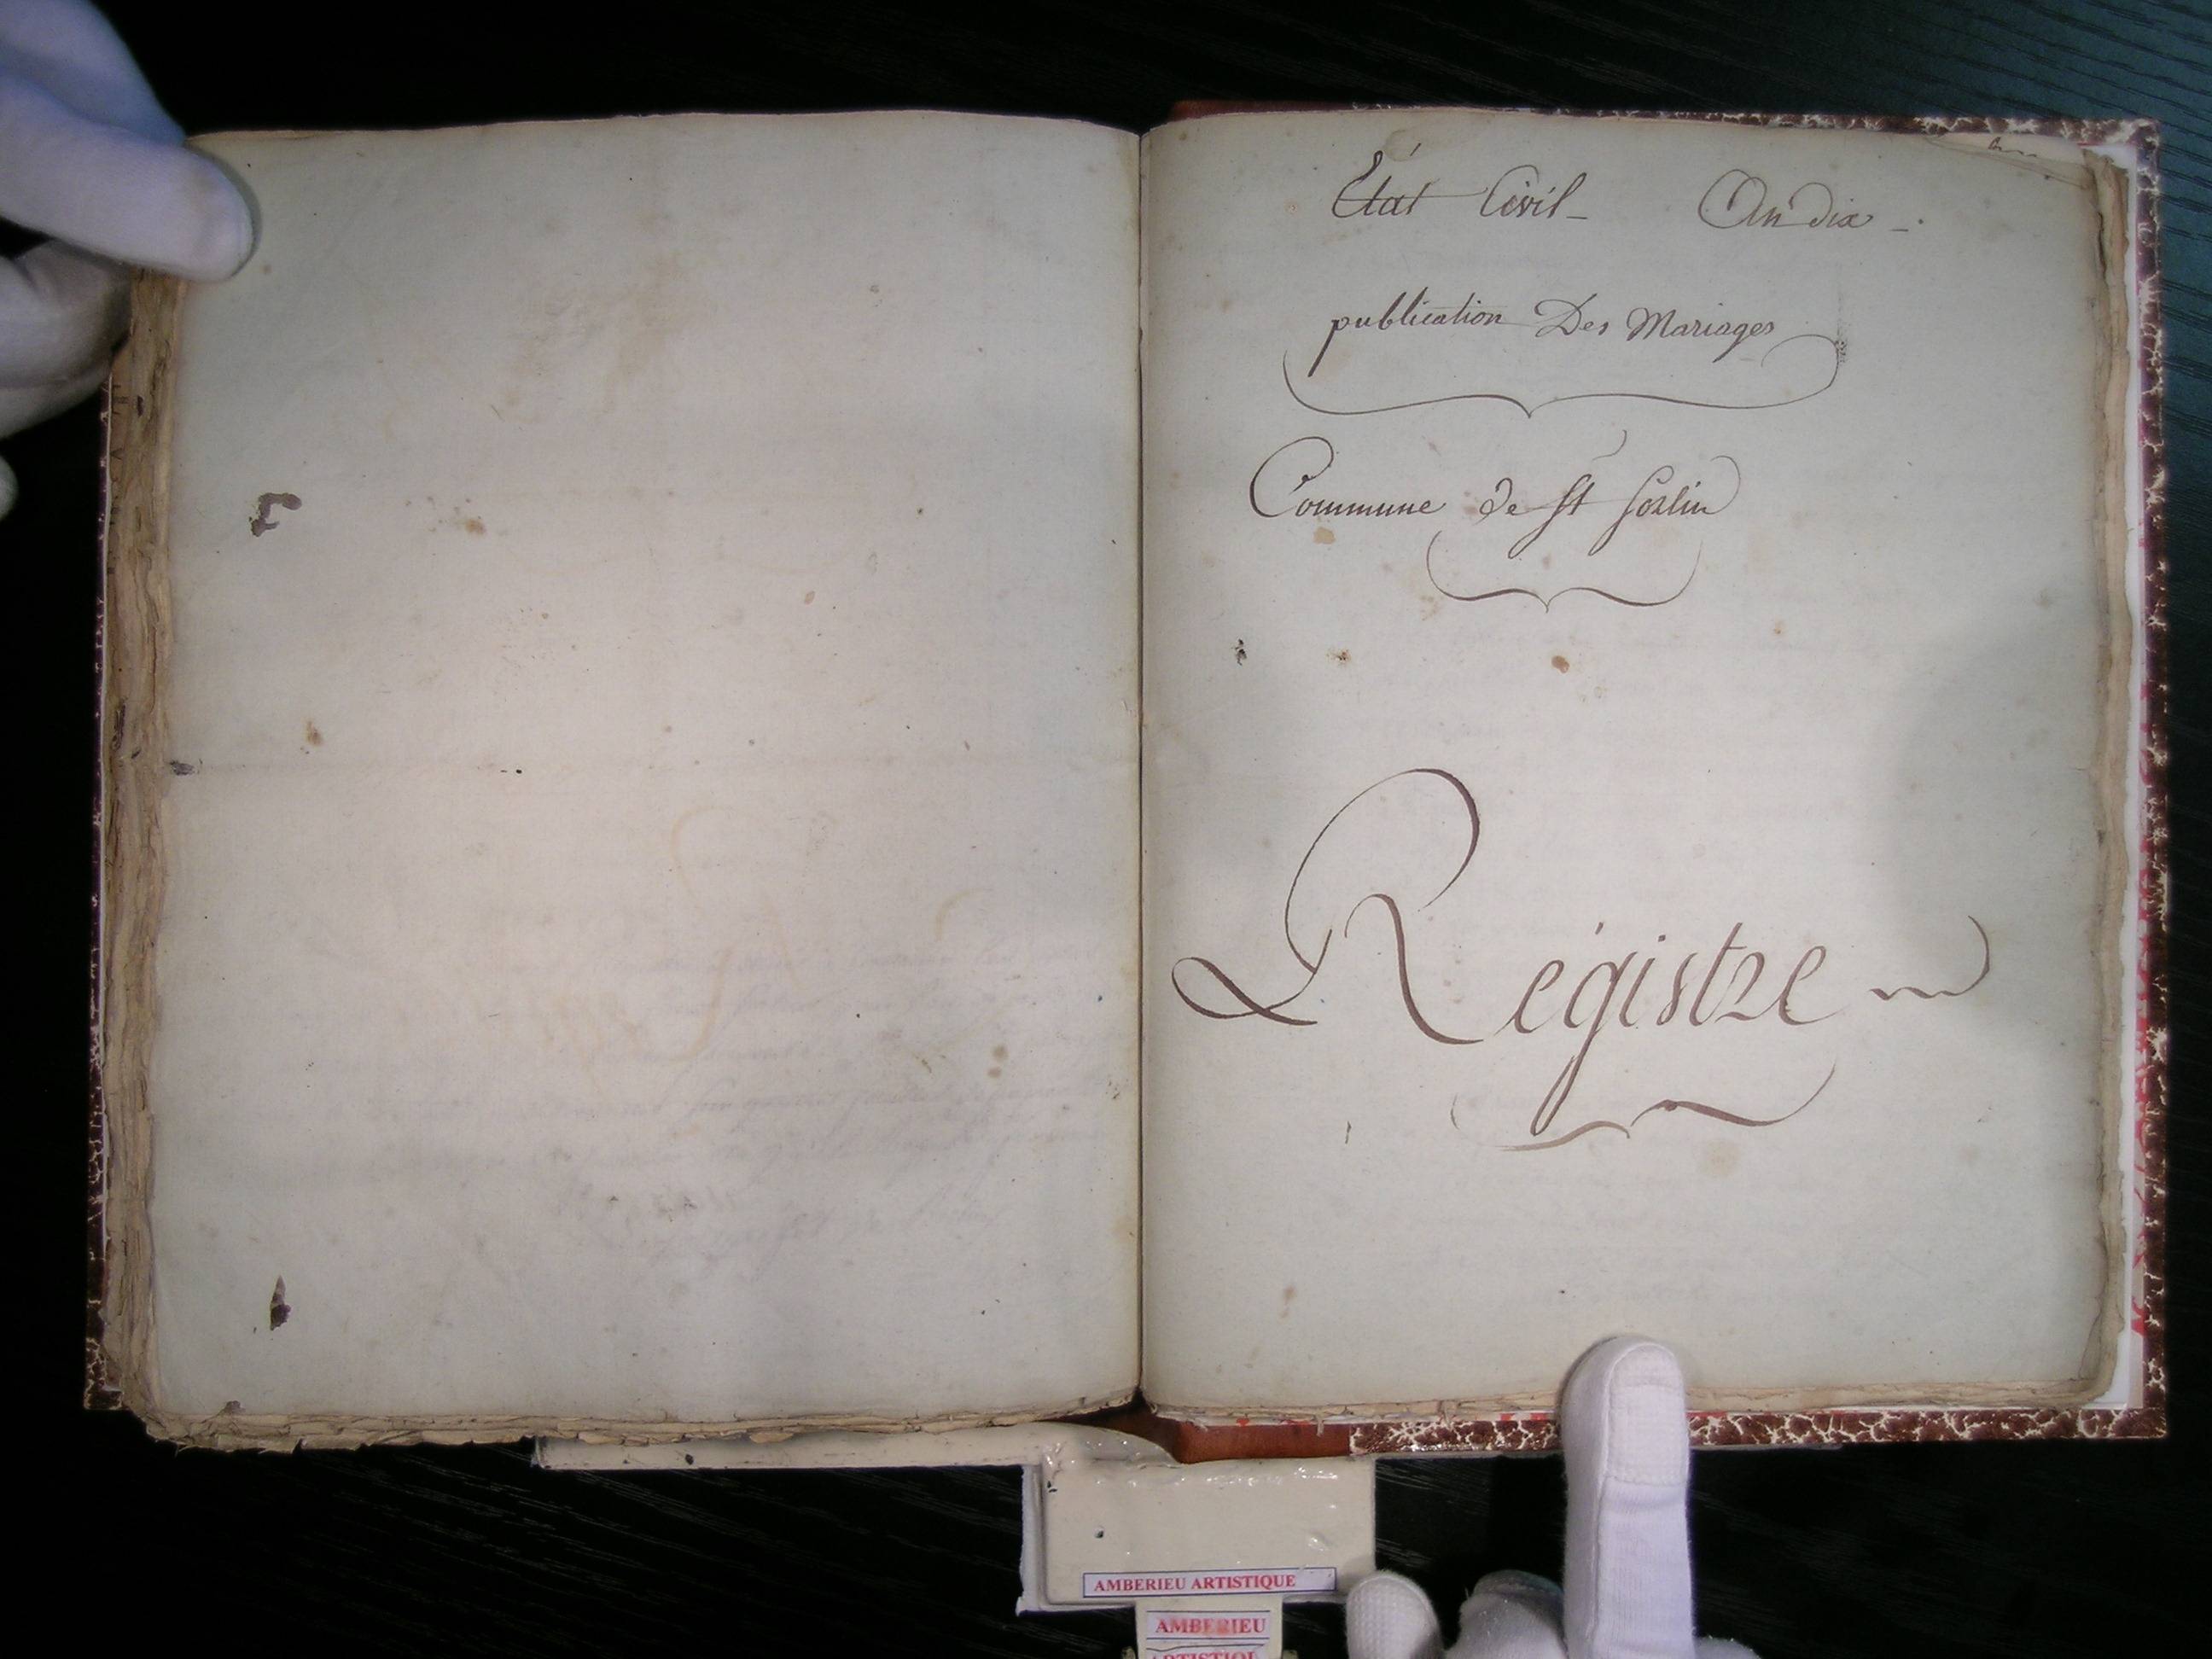 État Civil - An dix -.
publication Des Mariages
Commune de St Sorlin
Régistre
AMBERIEU ARTISTIQUE
AMBERIEU
ARTISTIQUE